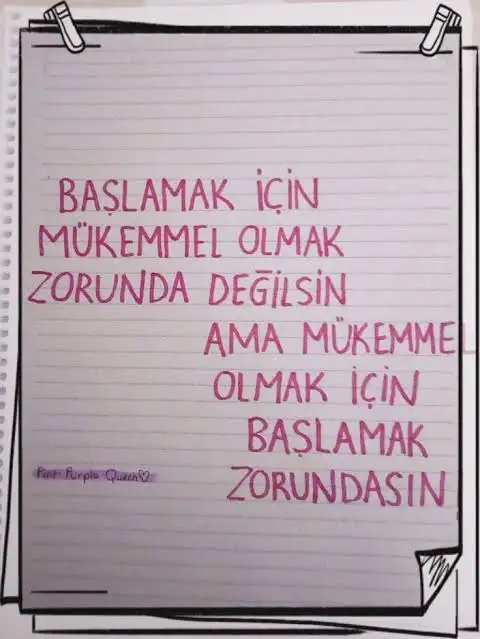 BAŞLAMAK İÇİN
MÜKEMMEL OLMAK
ZORUNDA DEĞİLSİN
AMA MÜKEMMEL
OLMAK İÇİN
BAŞLAMAK
Purple Queen♡
ZORUNDASIN